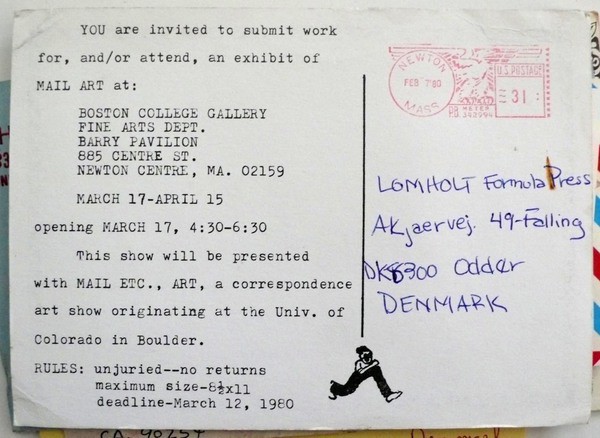 YOU are invited to submit work
for, and/or attend, an exhibit of
MAIL ART at:
BOSTON COLLEGE GALLERY
FINE ARTS DEPT.
BARRY PAVILION
885 CENTRE ST.
NEWTON CENTRE, MA. 02159
MARCH 17-APRIL 15
opening MARCH 17, 4:30-6:30
This show will be presented
with MAIL ETC., ART, a correspondence
art show originating at the Univ. of
Colorado in Boulder.
RULES: unjuried--no returns
maximum size-8½x11
deadline-March 12, 1980
NEWTON
FEB 7'80
MASS
U.S. POSTAGE
31
METER
LOMHOLT Formula Press
AKjaervej. 49-Falling
DK8300 Odder
DENMARK